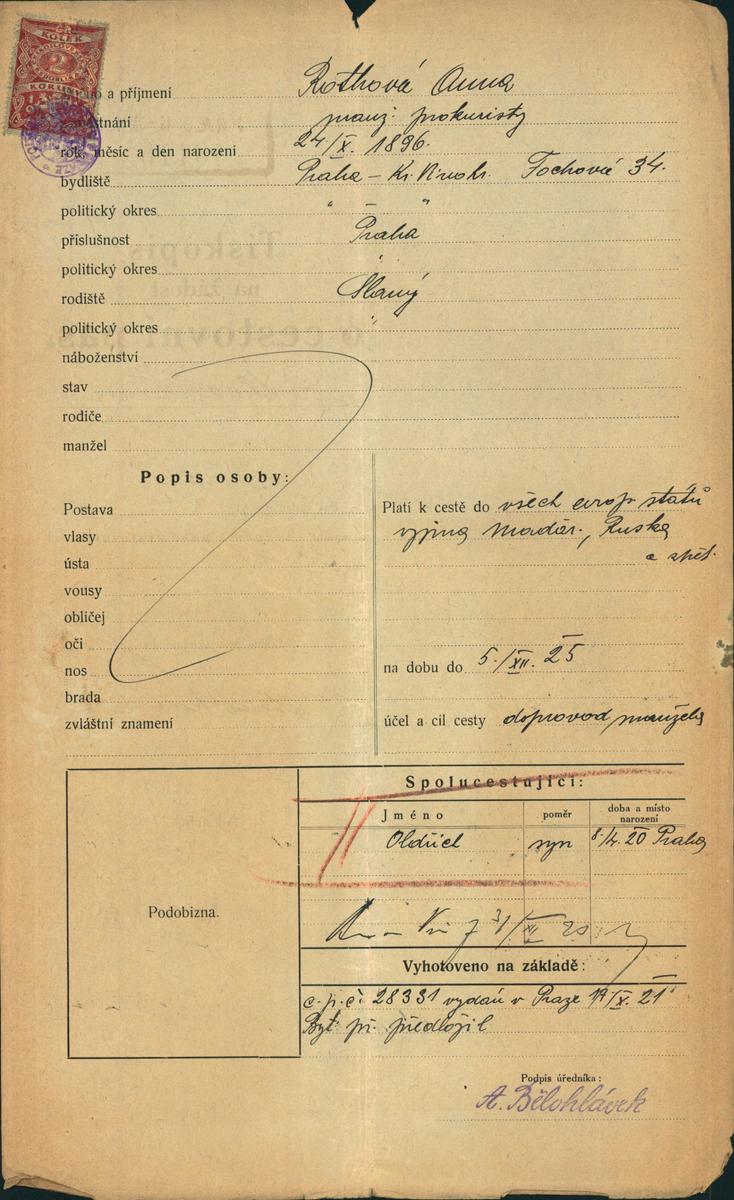 KOLEK
2
KORUNY
jméno a příjmení Rothová Anna
zaměstnání manž. prokuristy
rok, měsíc a den narození 24/X. 1896.
bydliště Praha – Kr. Vinohr. Fochova 34.
politický okres " – "
příslušnost Praha
politický okres "
rodiště Slaný
politický okres "
náboženství
stav
rodiče
manžel
Popis osoby:
Postava
vlasy
ústa
vousy
obličej
oči
nos
brada
zvláštní znamení
Platí k cestě do všech evrop. států
vyjma Maďar., Ruska
a zpět.
na dobu do 5./XII. 25
účel a cíl cesty doprovod manžela
Spolucestující:
Jméno poměr doba a místo narození
Oldřich syn 8./4. 20 Praha
31/XII
Podobizna.
Vyhotoveno na základě:
c. p. č. 28331 vydán v Praze 17/X. 21
Byt. př. předložil
Podpis úředníka:
A. Bělohlávek